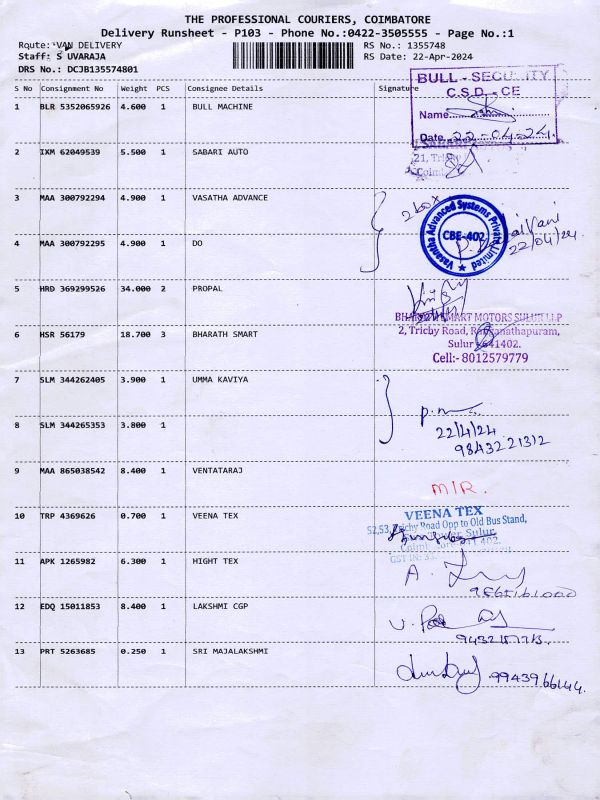 THE PROFESSIONAL COURIERS, COIMBATORE
Delivery Runsheet - P103 - Phone No.:0422-3505555 - Page No.:1
Route: VAN DELIVERY
RS No.: 1355748
Staff: S UVARAJA
RS Date: 22-Apr-2024
DRS No.: DCJB135574801
S No Consignment No Weight PCS Consignee Details Signature
BULL - SECURITY
C.S.D. - CE
Name
Date 22-04-24
1 BLR 5352065926 4.600 1 BULL MACHINE
2 IXM 62049539 5.500 1 SABARI AUTO
21, Trichy
Coim
3 MAA 300792294 4.900 1 VASATHA ADVANCE
2 box
Vasantha Advanced Systems Private Limited
CBE-402
22/04/24
4 MAA 300792295 4.900 1 DO
5 HRD 369299526 34.000 2 PROPAL
BHARATH SMART MOTORS SULUR LLP
2, Trichy Road, Ranganathapuram,
Sulur - 641402.
Cell:- 8012579779
6 HSR 56179 18.700 3 BHARATH SMART
7 SLM 344262405 3.900 1 UMMA KAVIYA
22/4/24
9843221312
8 SLM 344265353 3.800 1
9 MAA 865038542 8.400 1 VENTATARAJ
M/R.
10 TRP 4369626 0.700 1 VEENA TEX
VEENA TEX
52,53, Trichy Road Opp to Old Bus Stand,
Sulur
GST IN: 33
11 APK 1265982 6.300 1 HIGHT TEX
12 EDQ 15011853 8.400 1 LAKSHMI CGP
13 PRT 5263685 0.250 1 SRI MAJALAKSHMI
9943966144